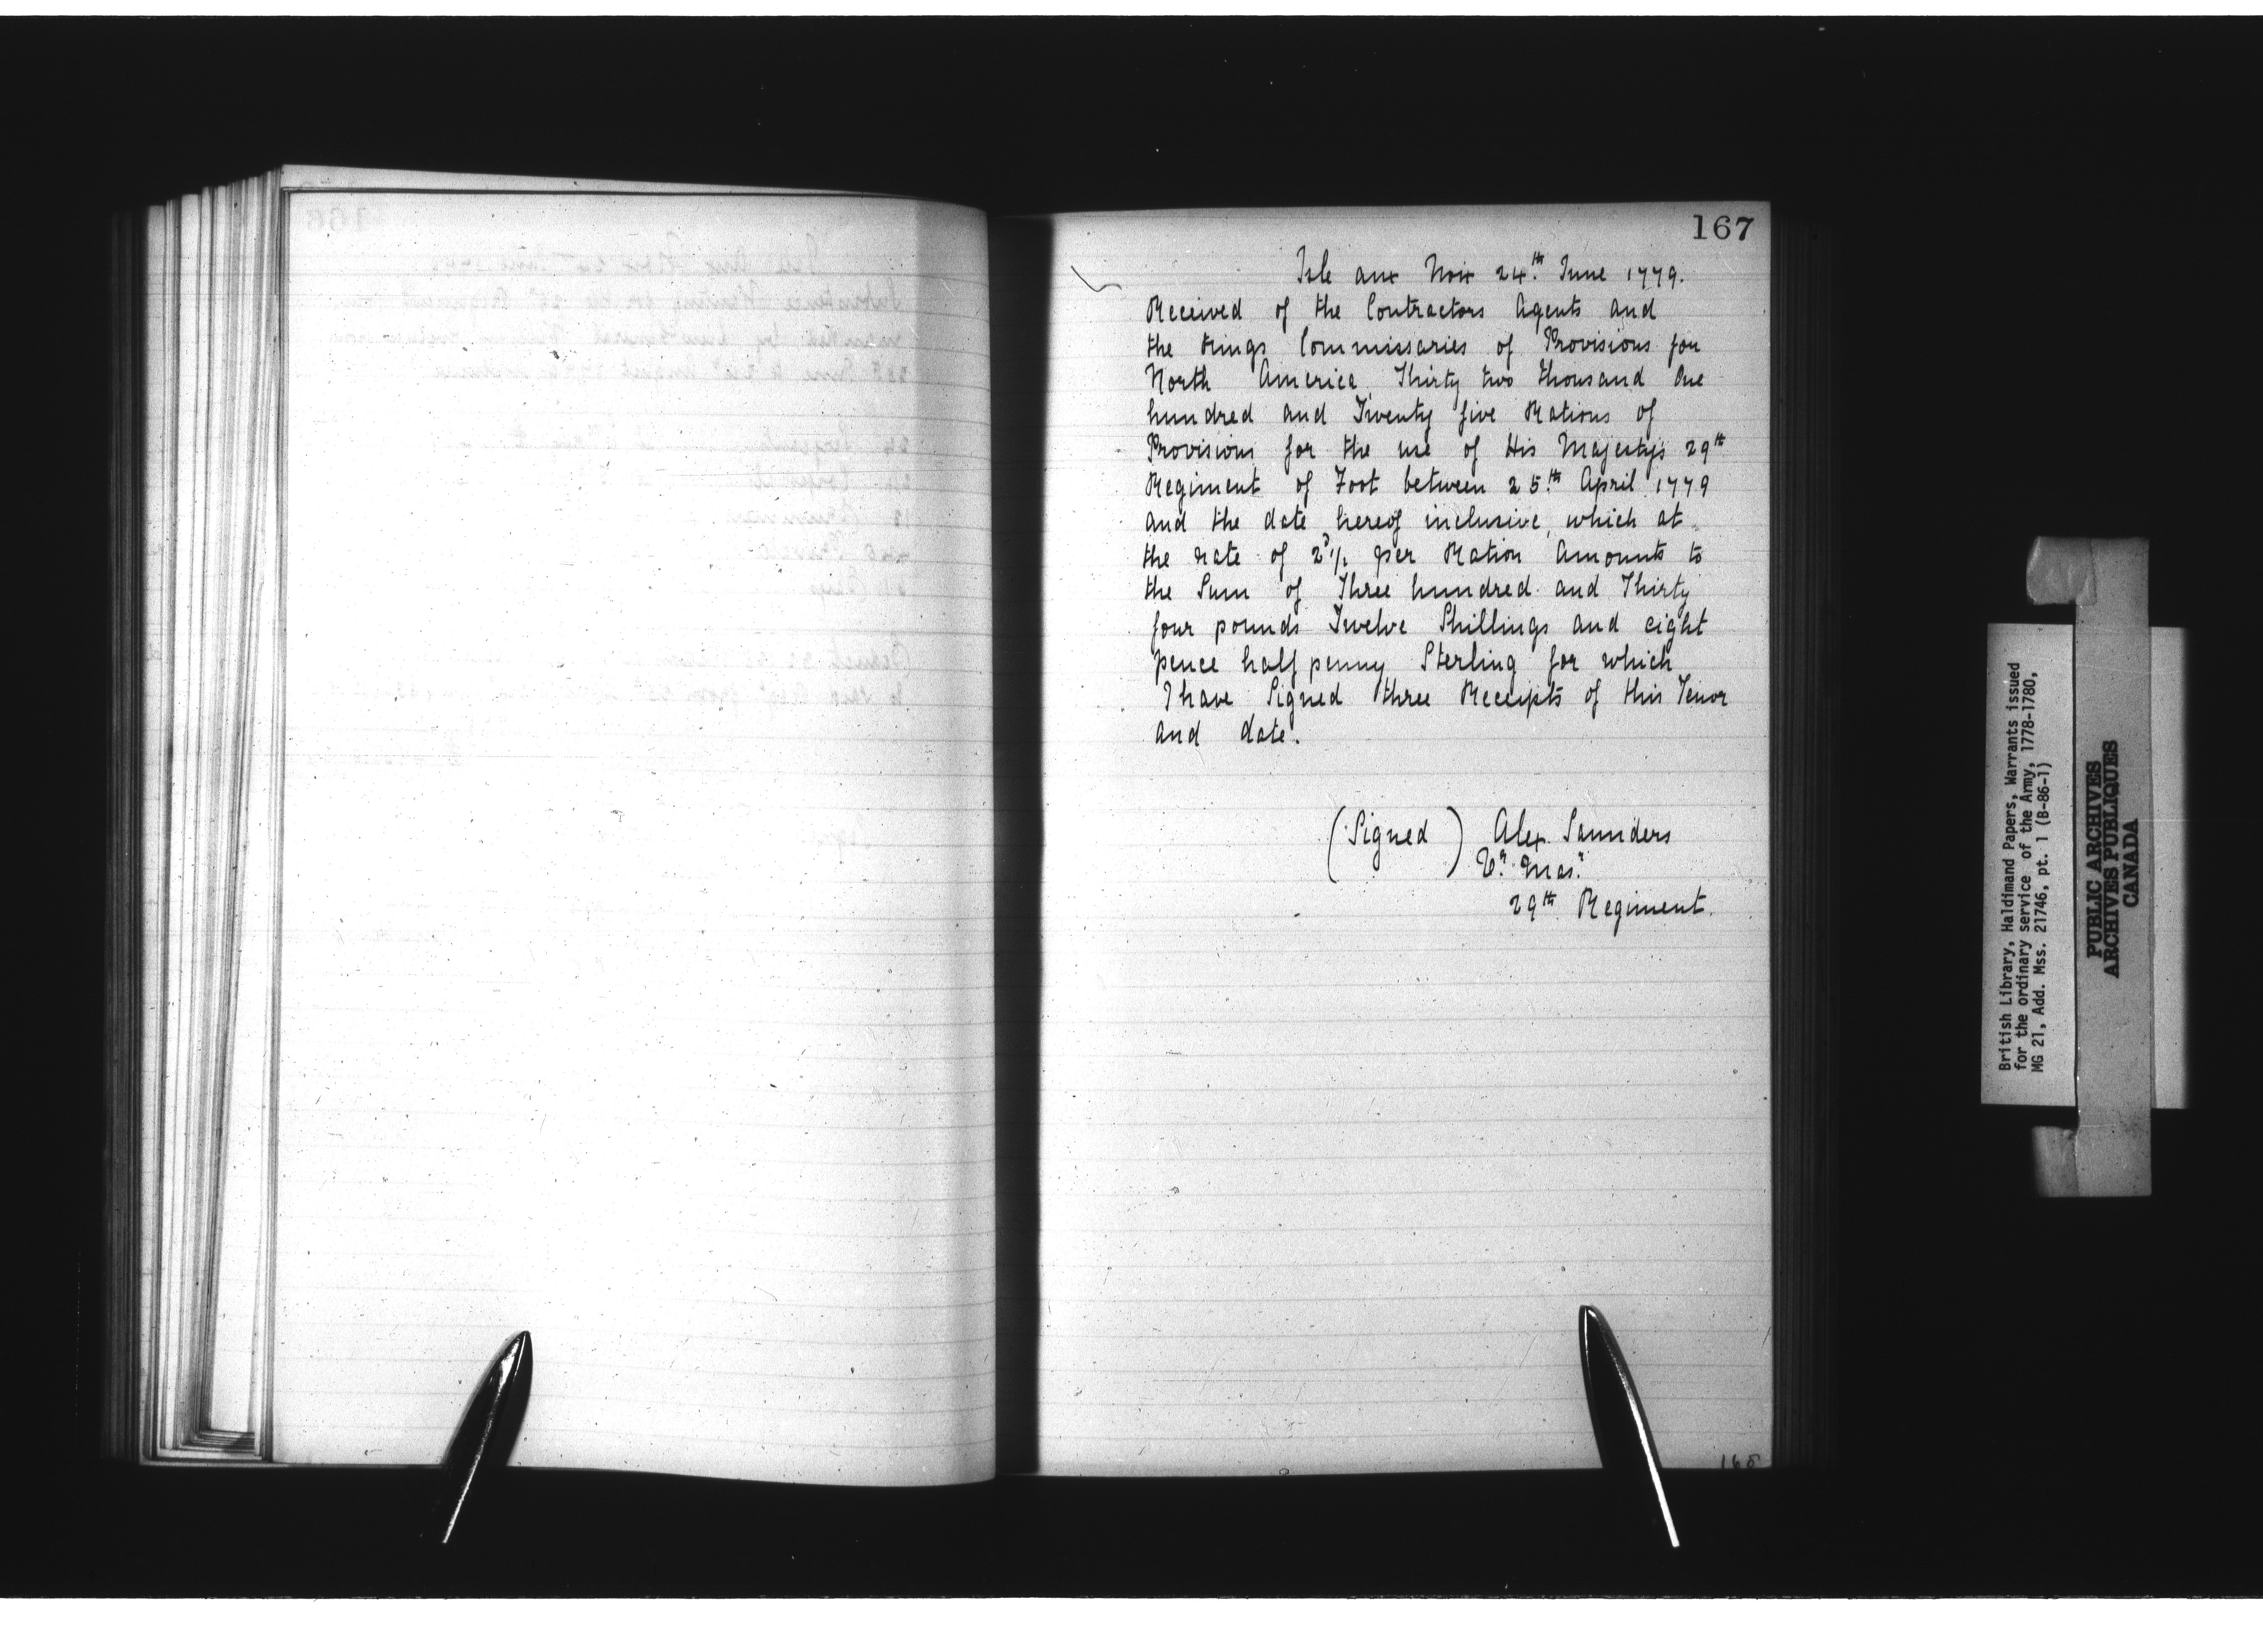 167
Isle aux Noix 24th June 1779.
Received of the Contractors Agents and
the Kings Commissaries of Provisions for
North America, Thirty two thousand One
hundred and Twenty five Rations of
Provisions for the use of His Majestys 29th
Regiment of Foot between 25th April 1779
and the date hereof inclusive, which at
the rate of 2D 1/2 per Ration Amounts to
the Sum of Three hundred and Thirty
four pounds Twelve Shillings and eight
pence half penny Sterling for which
I have Signed three Receipts of this Tenor
and date.
(Signed) Alex. Saunders
Qr. Mas.r
29th Regiment.
168
British Library, Haldimand Papers, Warrants issued
for the ordinary service of the Army, 1778-1780,
MG 21, Add. Mss. 21746, pt. 1 (B-86-1)
PUBLIC ARCHIVES
ARCHIVES PUBLIQUES
CANADA